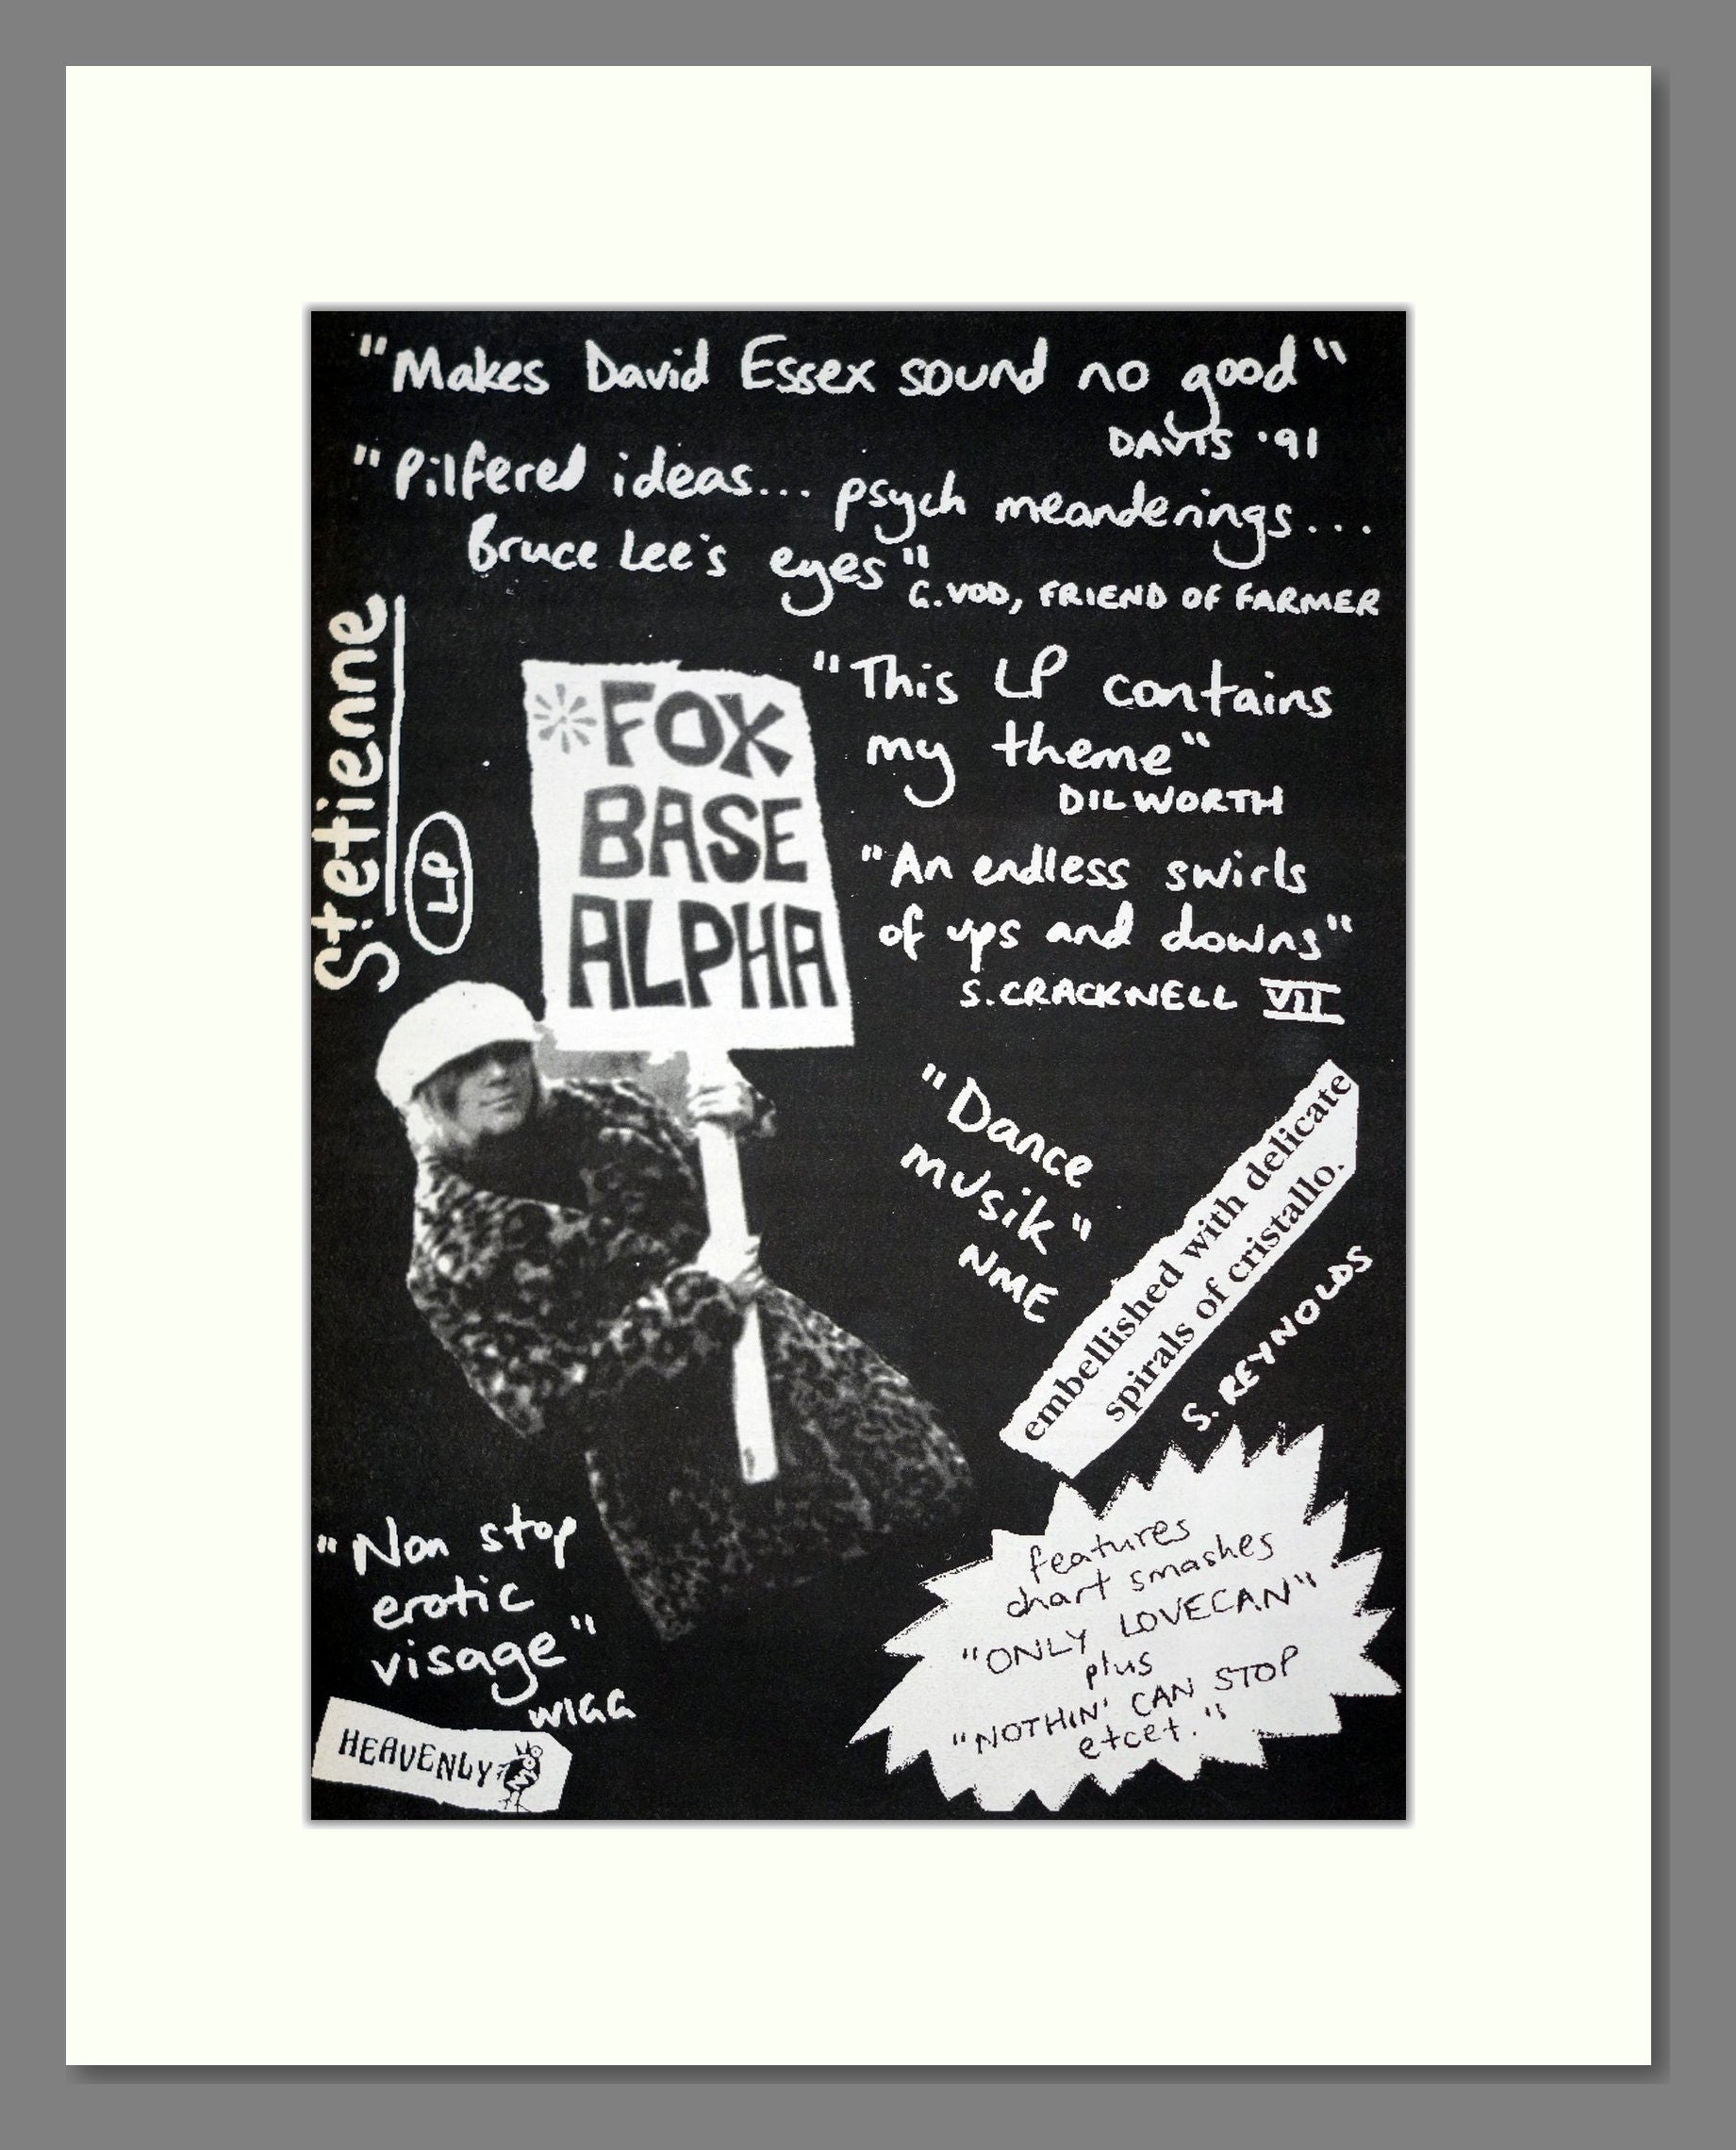 "Makes David Essex sound no good"
DAVIS '91
"Pilfered ideas... psych meanderings...
Bruce Lee's eyes"
G.VOD, FRIEND OF FARMER
Stetienne
LP
*FOX
BASE
ALPHA
"This LP contains
my theme"
DILWORTH
"An endless swirls
of ups and downs"
S.CRACKNELL VII
"Dance
musik"
NME
embellished with delicate
spirals of cristallo.
S. REYNOLDS
"Non stop
erotic
visage"
WIGG
HEAVENLY
features
chart smashes
"ONLY LOVECAN"
plus
"NOTHIN' CAN STOP
etcet."